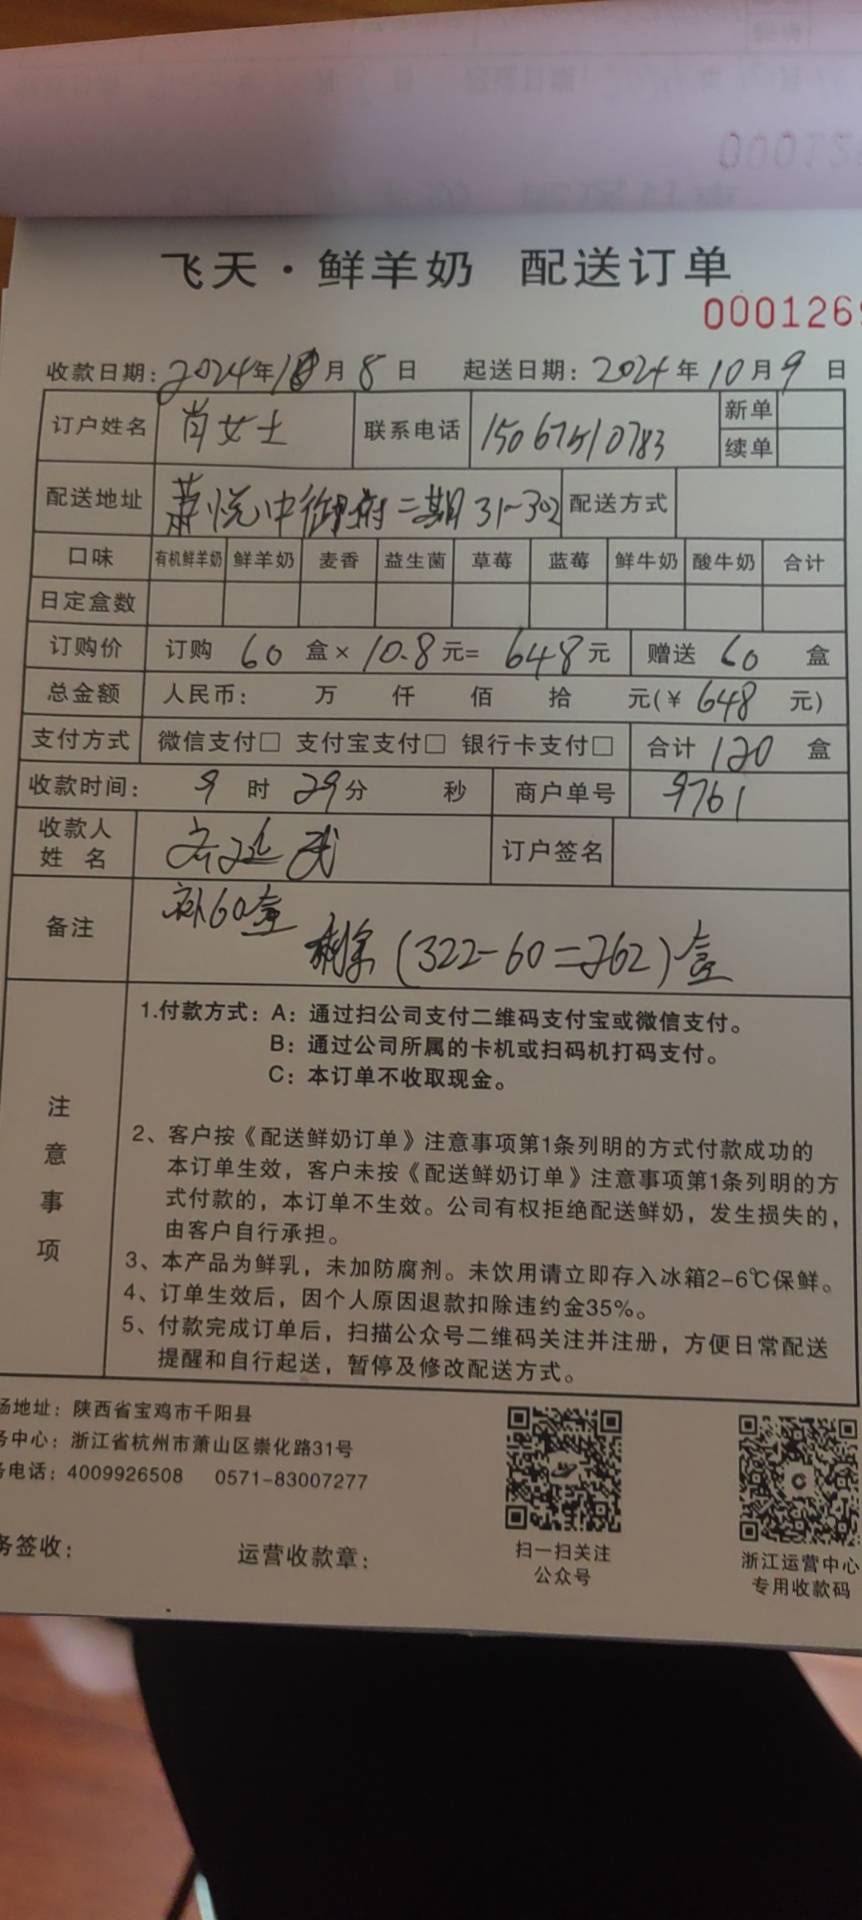 飞天·鲜羊奶 配送订单
000126
收款日期：2024年10月8日 起送日期：2024年10月9日
订户姓名 肖女士 联系电话 15067510783 新单
续单
配送地址 萧悦中御府二期31-302 配送方式
口味 有机鲜羊奶 鲜羊奶 麦香 益生菌 草莓 蓝莓 鲜牛奶 酸牛奶 合计
日定盒数
订购价 订购 60 盒×10.8元=648元 赠送 60 盒
总金额 人民币： 万 仟 佰 拾 元(¥648元)
支付方式 微信支付□ 支付宝支付□ 银行卡支付□ 合计 120 盒
收款时间： 9时29分 秒 商户单号 9761
收款人
姓 名 订户签名
备注 补60盒
剩余(322-60=262)盒
注意事项
1.付款方式：A：通过扫公司支付二维码支付宝或微信支付。
B：通过公司所属的卡机或扫码机打码支付。
C：本订单不收取现金。
2、客户按《配送鲜奶订单》注意事项第1条列明的方式付款成功的
本订单生效，客户未按《配送鲜奶订单》注意事项第1条列明的方
式付款的，本订单不生效。公司有权拒绝配送鲜奶，发生损失的，
由客户自行承担。
3、本产品为鲜乳，未加防腐剂。未饮用请立即存入冰箱2-6℃保鲜。
4、订单生效后，因个人原因退款扣除违约金35%。
5、付款完成订单后，扫描公众号二维码关注并注册，方便日常配送
提醒和自行起送，暂停及修改配送方式。
场地址：陕西省宝鸡市千阳县
务中心：浙江省杭州市萧山区崇化路31号
电话：4009926508 0571-83007277
务签收： 运营收款章：
扫一扫关注
公众号
浙江运营中心
专用收款码